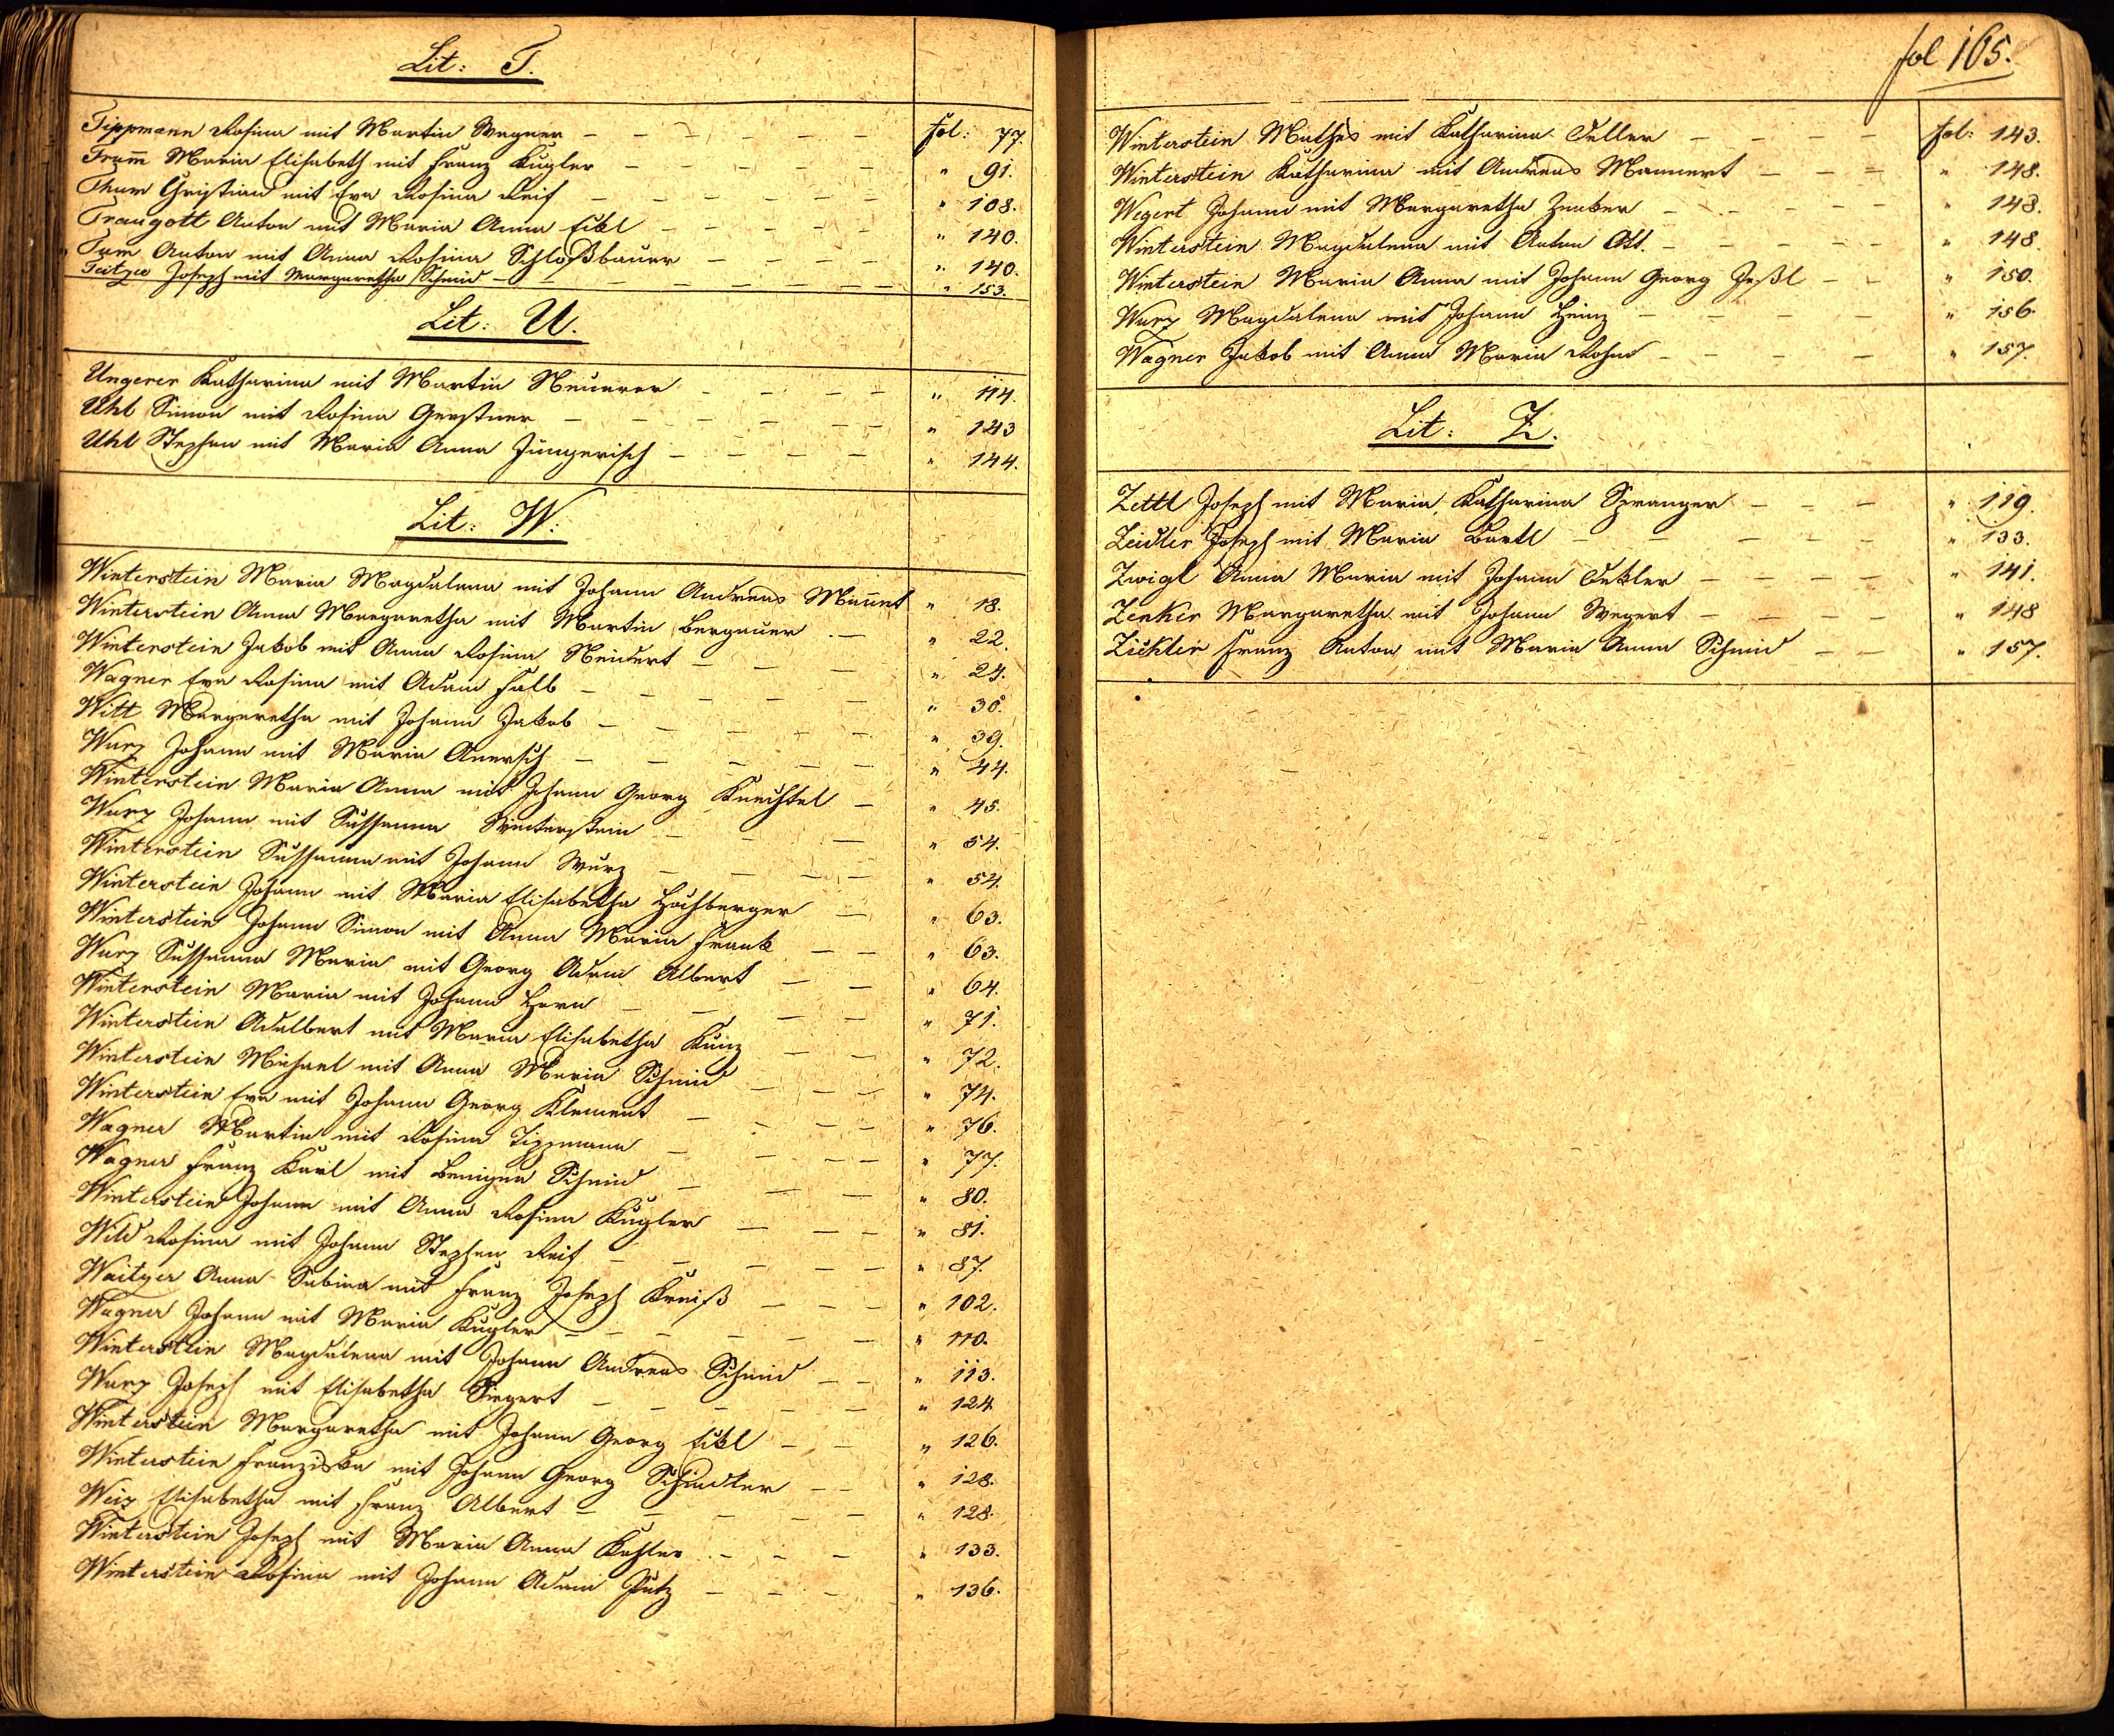 Lit: T.
Tippmann Rosina mit Martin Wagner — fol: 77.
Tram̄ Maria Elisabeth mit Franz Kugler — " 91.
Thum Christian mit Eva Rosina Reif — " 108.
Traugott Anton mit Maria Anna Eckl — " 140.
Tum Anton mit Anna Rosina Schloßbauer — " 140.
Teitzer Joseph mit Margaretha Schmid — " 153.
Lit: U.
Ungerer Katharina mit Martin Neuerer — " 114.
Uhl Simon mit Rosina Gerstner — " 143
Uhl Stephan mit Maria Anna Jungerisch — " 144.
Lit: W.
Winterstein Maria Magdalena mit Johann Andreas Man̄ert " 18.
Winterstein Anna Margaretha mit Martin Bergauer — " 22.
Winterstein Jakob mit Anna Rosina Neidert — " 24.
Wagner Eva Rosina mit Adam Falb — " 30.
Witt Margaretha mit Johann Jakob — " 39.
Wurz Johann mit Maria Anersch — " 44.
Winterstein Maria Anna mit Johann Georg Knechtel — " 45.
Wurz Johann mit Sussanna Winterstein — " 54.
Winterstein Sussanna mit Johann Wurz — " 54.
Winterstein Johann mit Maria Elisabetha Hochberger — " 63.
Winterstein Johann Simon mit Anna Maria Frank — " 63.
Wurz Sussanna Maria mit Georg Adam Albert — " 64.
Winterstein Maria mit Johann Horn — " 71.
Winterstein Adalbert mit Maria Elisabetha Kunz — " 72.
Winterstein Michael mit Anna Maria Schmid — " 74.
Winterstein Eva mit Johann Georg Klement — " 76.
Wagner Martin mit Rosina Tippmann — " 77.
Wagner Franz Karl mit Benigna Schmid — " 80.
Winterstein Johann mit Anna Rosina Kugler — " 81.
Wild Rosina mit Johann Stephan Reif — " 87.
Waitzer Anna Sabina mit Franz Joseph Kreiß — " 102.
Wagner Johann mit Maria Kugler — " 110.
Winterstein Magdalena mit Johann Andreas Schmid — " 113.
Wurz Joseph mit Elisabetha Siegert — " 124.
Winterstein Margaretha mit Johann Georg Eckl — " 126.
Winterstein Franziska mit Johann Georg Schindler — " 128.
Weiz Elisabetha mit Franz Albert — " 128.
Winterstein Joseph mit Maria Anna Kohler — " 133.
Winterstein Rosina mit Johann Adam Putz — " 136.
fol 165.
Winterstein Mathes mit Katharina Teller — fol: 143.
Winterstein Katharina mit Andreas Mannert — " 148.
Wegert Johann mit Margaretha Zenker — " 148.
Winterstein Magdalena mit Anton Ott. — " 148.
Winterstein Maria Anna mit Johann Georg Jeßl — " 150.
Wurz Magdalena mit Johann Heinz — " 156.
Wagner Jakob mit Anna Maria — " 157.
Lit: Z.
Zettl Joseph mit Maria Katharina Spranger — " 119.
Zeidler Joseph mit Maria Bartl — " 133.
Zwigl Anna Maria mit Johann Tekler — " 141.
Zenker Margaretha mit Johann Wegert — " 148
Zickler Franz Anton mit Maria Anna Schmid — " 157.